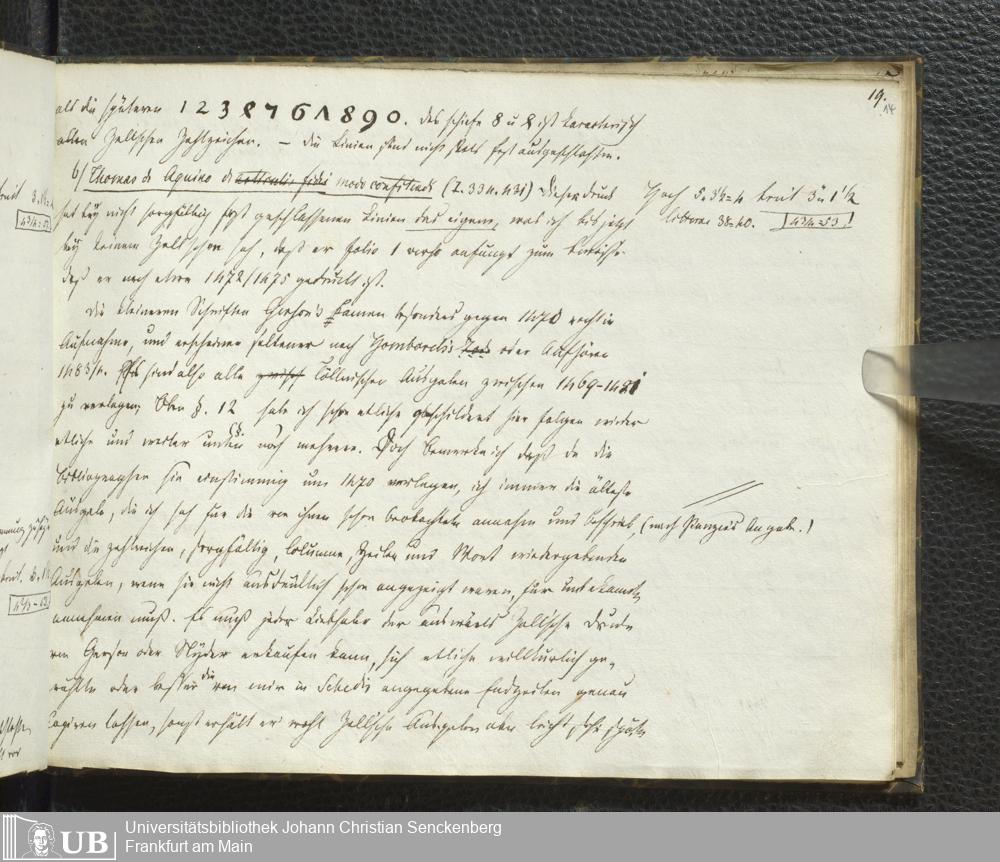 19.
als die späteren 1 2 3 8 7 6 Λ 8 9 0. Das schiefe 8 u 2 ist karacteristisch
allen Zellschen Zahlzeichen. – Die Linien sind nicht stets fest ausgeschlossen.
6/ Thomas de Aquino de articulis fidei modo confitendi (I. 33 n. 431) Dieser Druck
hat bey nicht sorgfältig fest geschlossenen Linien das eigene, was ich bis jetzt
bey keinem Zell schon sah, daß er folio 1 verso anfängt zum Beweise
daß er nach etwa 1472/1475 gedruckt ist.
Hoch 5 = 3½ = 4 breit 3 u 1½
litterae 38 = 40.
Die kleineren Schriften Gerson's kamen besonders gegen 1470 recht in
Aufnahme, und erscheinen seltener nach Hombarchs oder Aufhören
1483/4. Es sind also alle Cöllnischen Ausgaben zwischen 1469-1481
zu verlegen. Oben p. 12 habe ich schon etliche geschildert hier folgen wieder
etliche und weiter unten noch mehrere. Doch bemerke ich daß da die
Bibliographen sie einstimmig um 1470 verlegen, ich immer die älteste
Ausgabe, die ich sah für die von ihnen schon beobachtete annahm und beschrieb, (nach Panzers Angabe.)
und die zahlreichen, sorgfältig, Columne, Zeilen und Wort wiedergebenden
Ausgaben, wenn sie nicht ausdrücklich schon angezeigt waren, für unbekannt
annehmen muß. Es muß jeder Liebhaber der auswärts Zell'sche Drucke
von Gerson oder Nyder erkaufen kann, sich etliche willkürlich ge-
wählte oder besser die von mir in Schedis angegebene Endzeilen genau
copiren lassen, sonst erhält er wohl Zell'sche Ausgaben aber leicht sehr späte
Universitätsbibliothek Johann Christian Senckenberg
Frankfurt am Main
UB